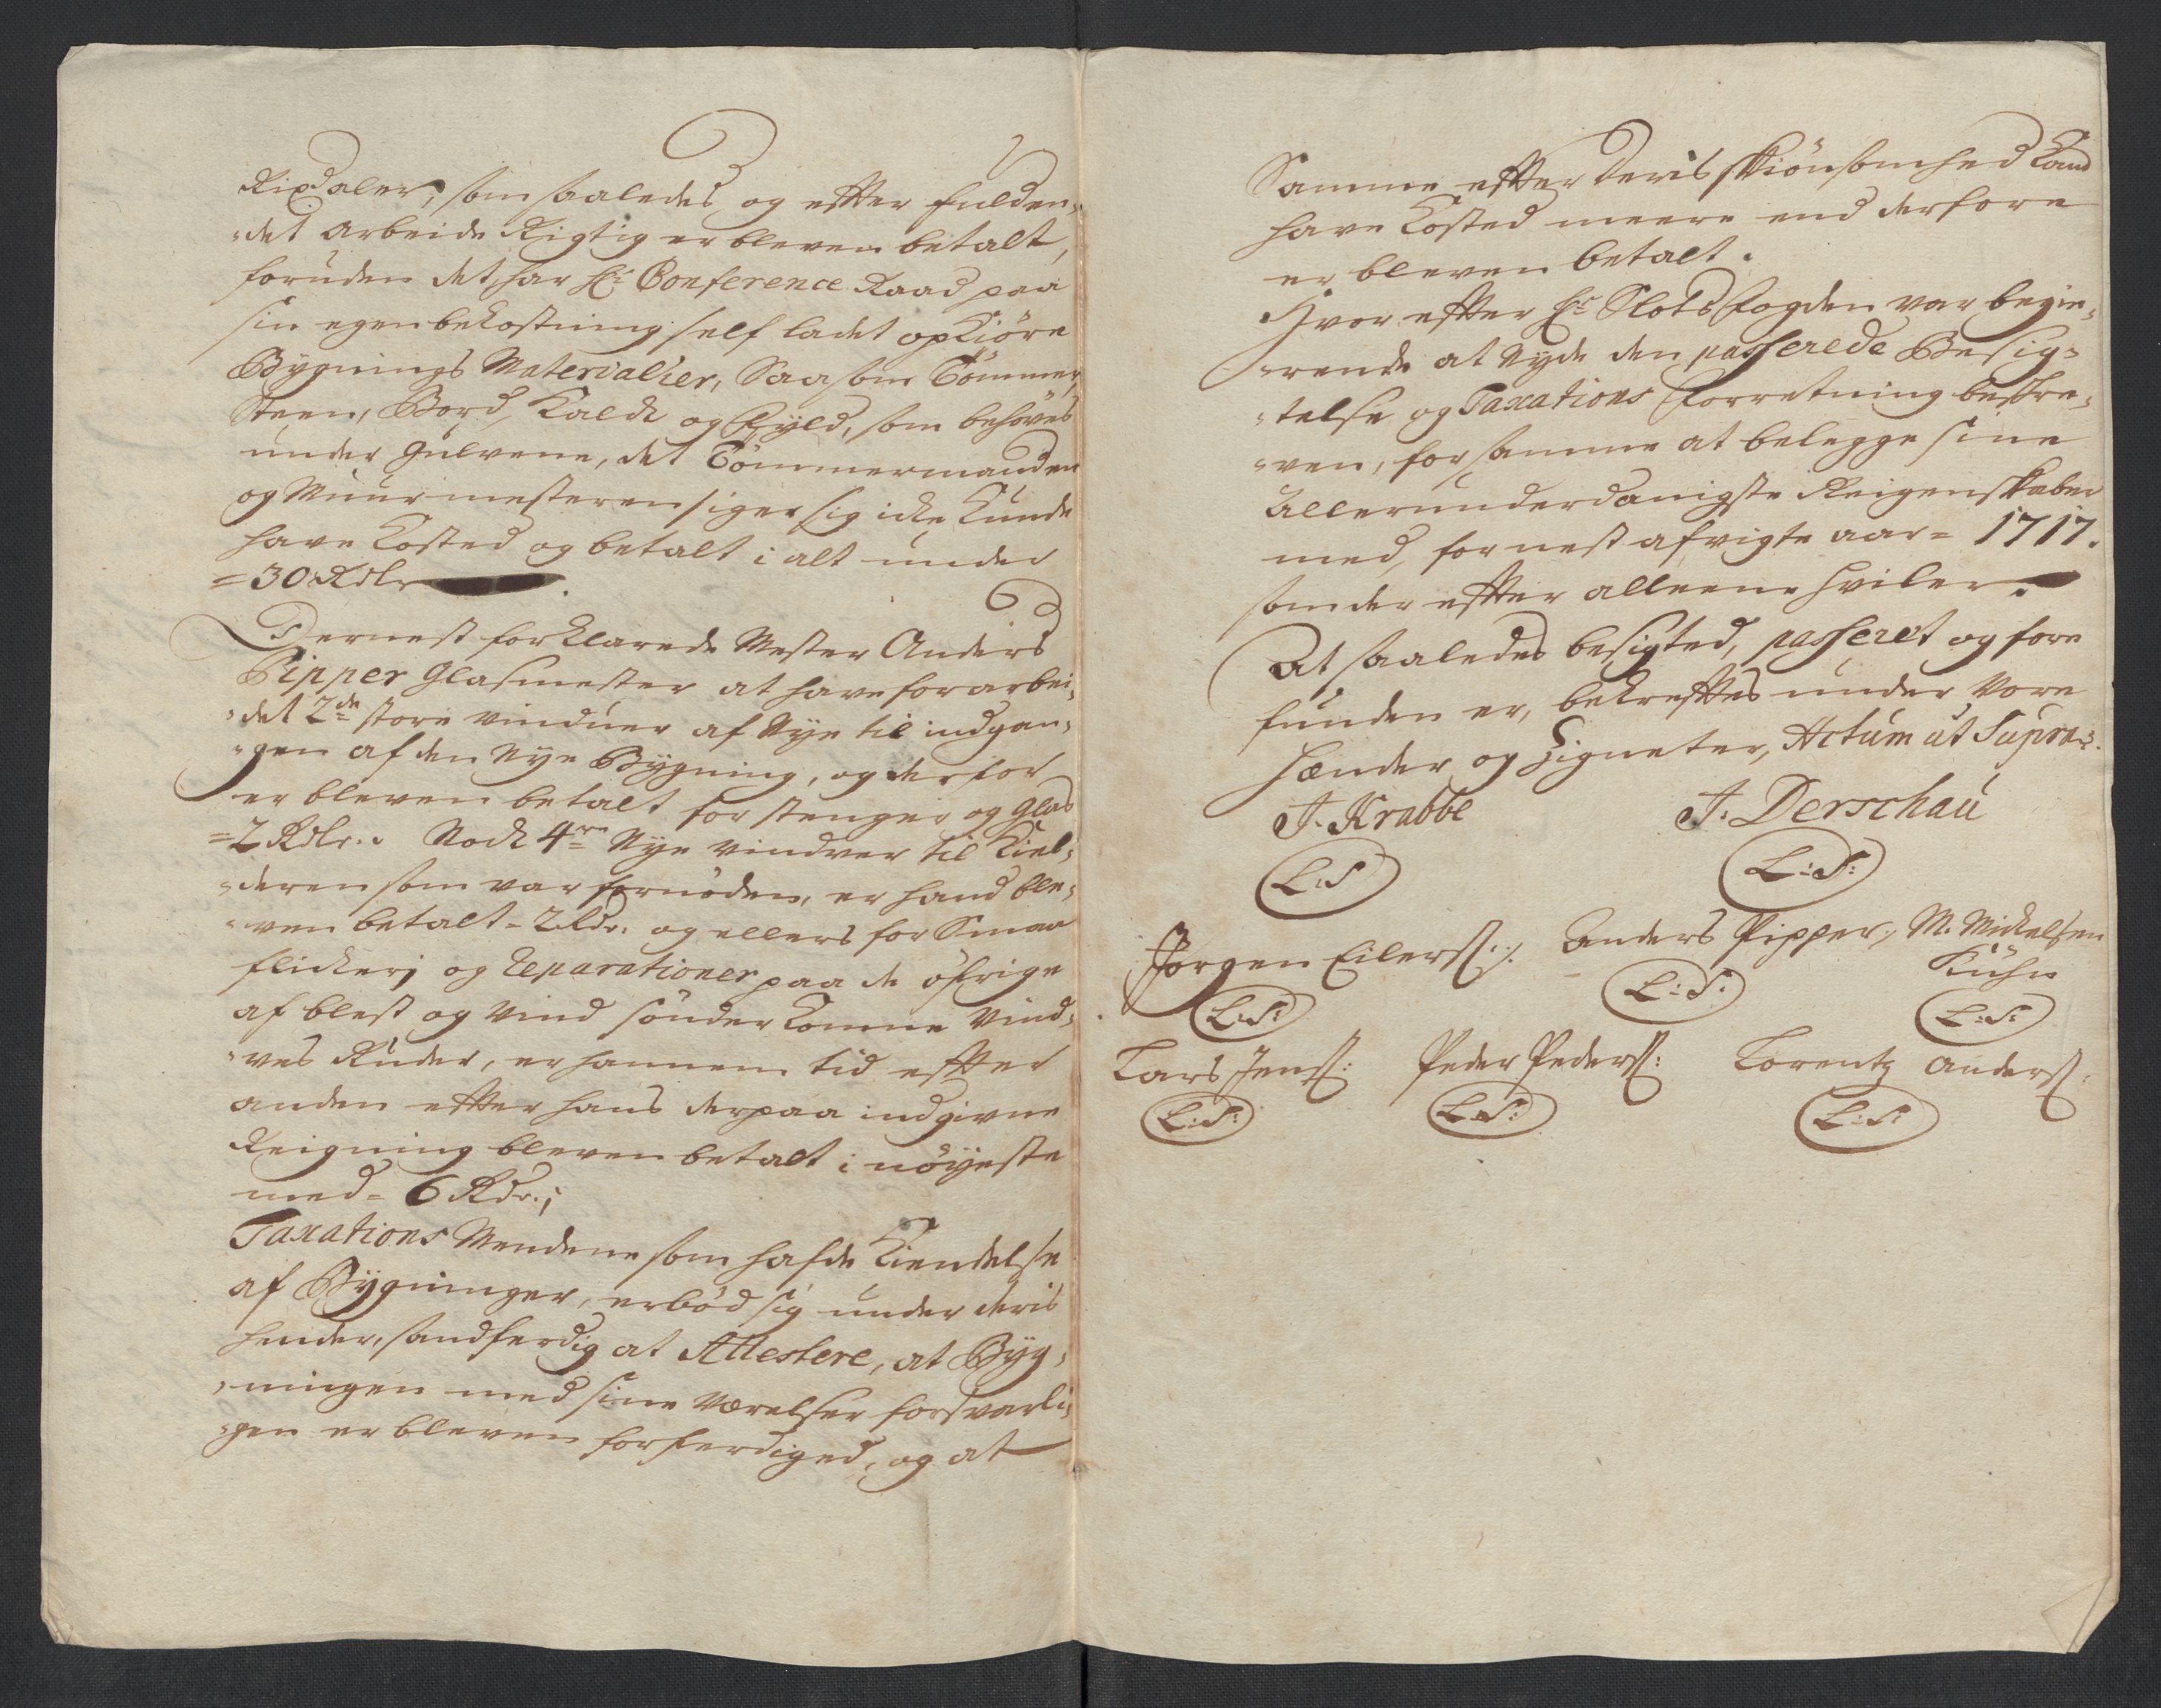 Rixdaler, som saaledes og effter fulden-
-det Arbeide Rigtig er bleven betalt,
foruden det har Hr Conference Raad paa
sin egen bekostning self ladet opkiøre
Bygnings Materialier, Saasom Tømmer,
Steen, Bord, Kalck og Fyld, som behøves
under Gulvene, det Tømmermanden
og Muurmesteren siger sig icke kunde
have kosted og betalt i alt under
=30 Rdlr.
Dernest forklarede Mester Anders
Pipper Glasmester at have forarbei-
-det 2de store vinduer af Nye til indgan-
-gen af den Nye Bygning, og derfor
er bleven betalt for stenger og Glas
=2 Rdlr. Nock 4re Nye vindver til Kiel-
-deren som var fornøden, er hand ble-
-ven betalt - 2 Rdr. og ellers for Smaa
flickerj og Reparationer paa de øfrige
af blest og vind sønder komne vind-
-ves Ruder, er hannem tid effter
anden effter hans derpaa indgivne
Reigning bleven betalt i nøyeste
med = 6 Rdr.;
Taxations Mendene som hafde Kiendelse
af Bygninger, erbød sig under deris
hender, sandferdig at Attestere, at Byg-
-ningen med sine værelser forsvarli-
-gen er bleven forferdiged, og at
Samme effter deris skiønsomhed kand
have kosted meere end derfore
er bleven betalt.
Hvor effter Hr Slotsfogden var begie-
-rende at Nyde den passerede Besig-
-telse og Taxations forretning beskre-
-ven, for samme at belegge sine
allerunderdanigste Reigenskaber
med, for nest afvigte aar = 1717.
som der effter alleene hviler.
At saaledes besigted, passeret og fore
funden er, bekrefftes under Vore
Hænder og Zigneter, Actum ut Supra.
J. Krabbe J. Derschau
L:S L:S:
Jørgen Eilerss: Anders Pipper, M. Mickelsen
Kühn
L:S: L:S: L:S:
Lars Jenss: Peder Pederss: Lorentz Anderss:
L:S: L:S: L:S: